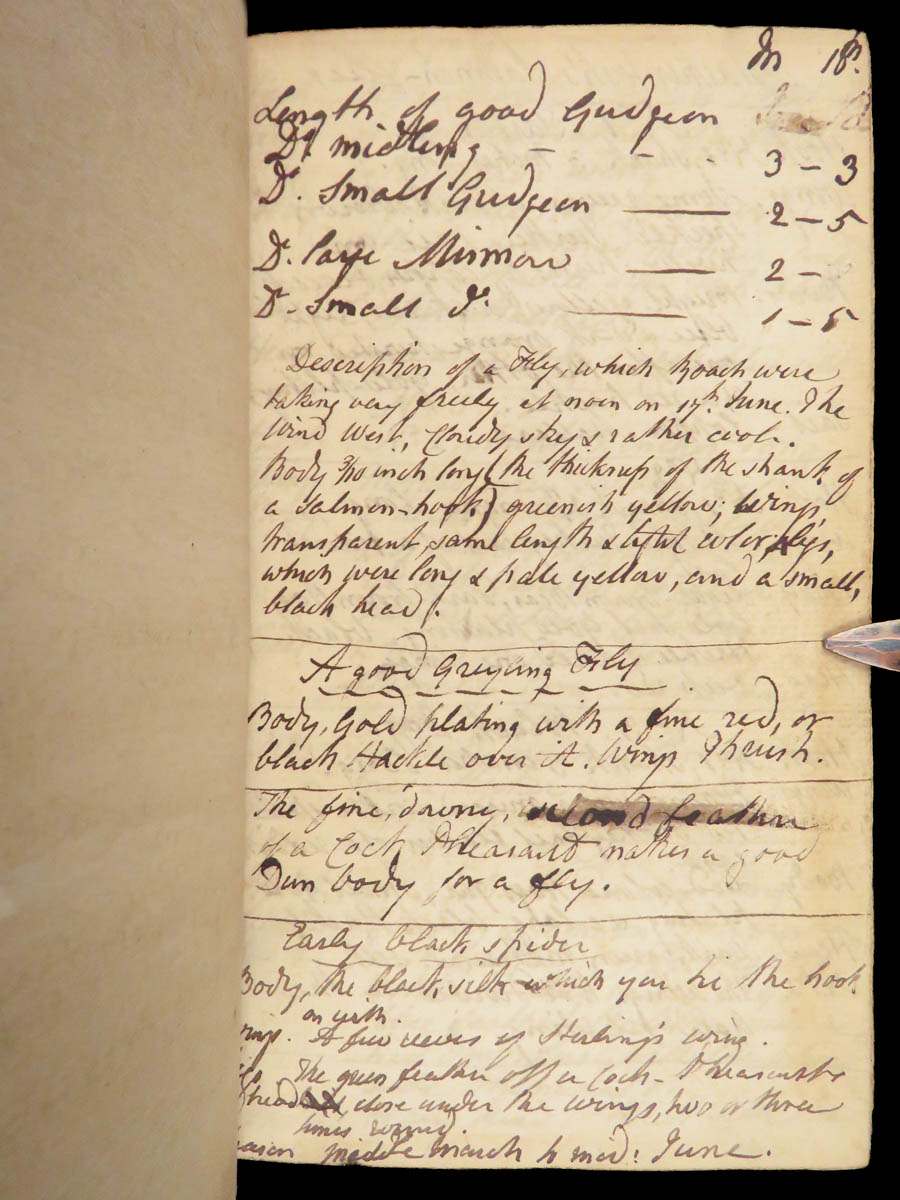 In 18ths
Length of good Gudgeon
Do. midling - - - 3 - 3
Do. Small Gudgeon — 2 - 5
Do. large Minnow — 2 -
Do. Small Do. — 1 - 5
Description of a Fly, which Roach were
taking very freely at noon on 17th. June. The
Wind West, Cloudy sky & rather cool.
Body 3/10 inch long (the thickness of the shank of
a Salmon-hook) greenish yellow; Wings,
transparent, same length & color; legs,
which were long & pale yellow, and a small,
black head.
A good Greyling Fly
Body, Gold plating with a fine red, or
black Hackle over it. Wings Thrush.
The fine, downy, second feather
of a Cock Pheasant makes a good
Dun body for a fly.
Early black spider
Body, the black silk which you tie the hook
on with.
A few of Sterling's wing.
The green feather off a Cock-Pheasants
head close under the wings, two or three
times round.
middle march to mid: June.